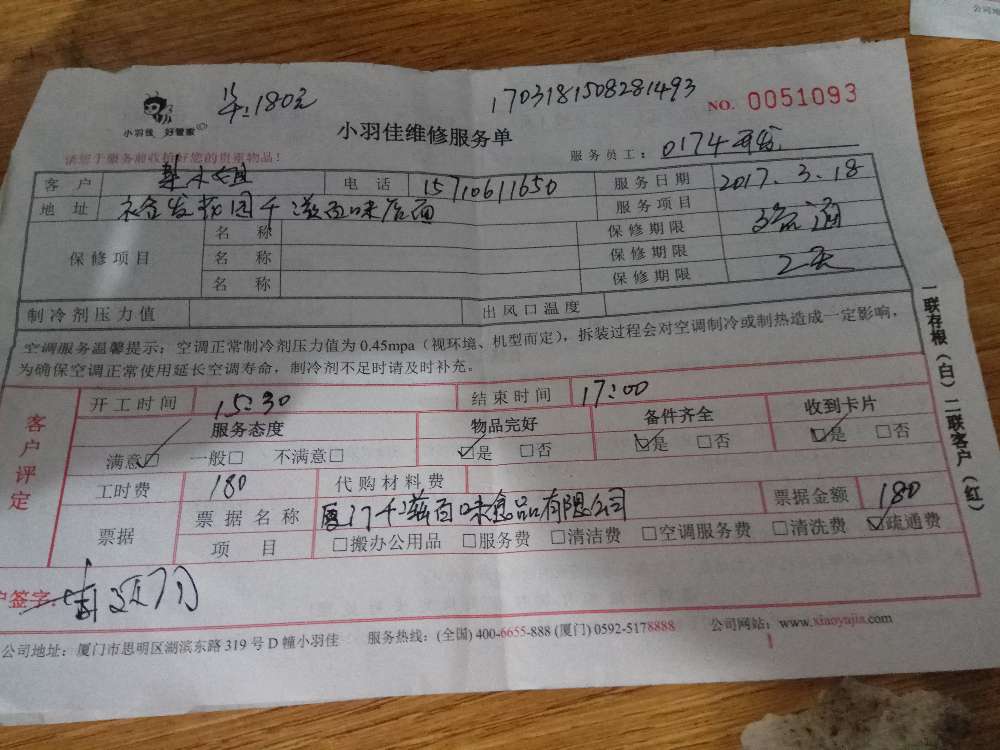 公司地
单:180元
1703181508281493
NO. 0051093
小羽佳 好管家
小羽佳维修服务单
请您于服务前收拾好您的贵重物品!
服务员工: 0174
客户 电话 15710611650 服务日期 2017.3.18
地址 千滋百味店面 服务项目 疏通
保修项目 名称 保修期限 2天
名称 保修期限
名称 保修期限
制冷剂压力值 出风口温度
空调服务温馨提示:空调正常制冷剂压力值为 0.45mpa(视环境、机型而定),拆装过程会对空调制冷或制热造成一定影响,
为确保空调正常使用延长空调寿命,制冷剂不足时请及时补充。
客户评定
开工时间 15:30 结束时间 17:00
服务态度 物品完好 备件齐全 收到卡片
满意☑ 一般□ 不满意□ ☑是 □否 ☑是 □否 ☑是 □否
工时费 180 代购材料费
票据 票据名称 厦门千滋百味食品有限公司 票据金额 180
项目 □搬办公用品 □服务费 □清洁费 □空调服务费 □清洗费 ☑疏通费
户签字:
公司地址:厦门市思明区湖滨东路 319 号 D 幢小羽佳 服务热线:(全国) 400-6655-888 (厦门) 0592-5178888 公司网站:www.xiaoyujia.com
一联存根(白)二联客户(红)